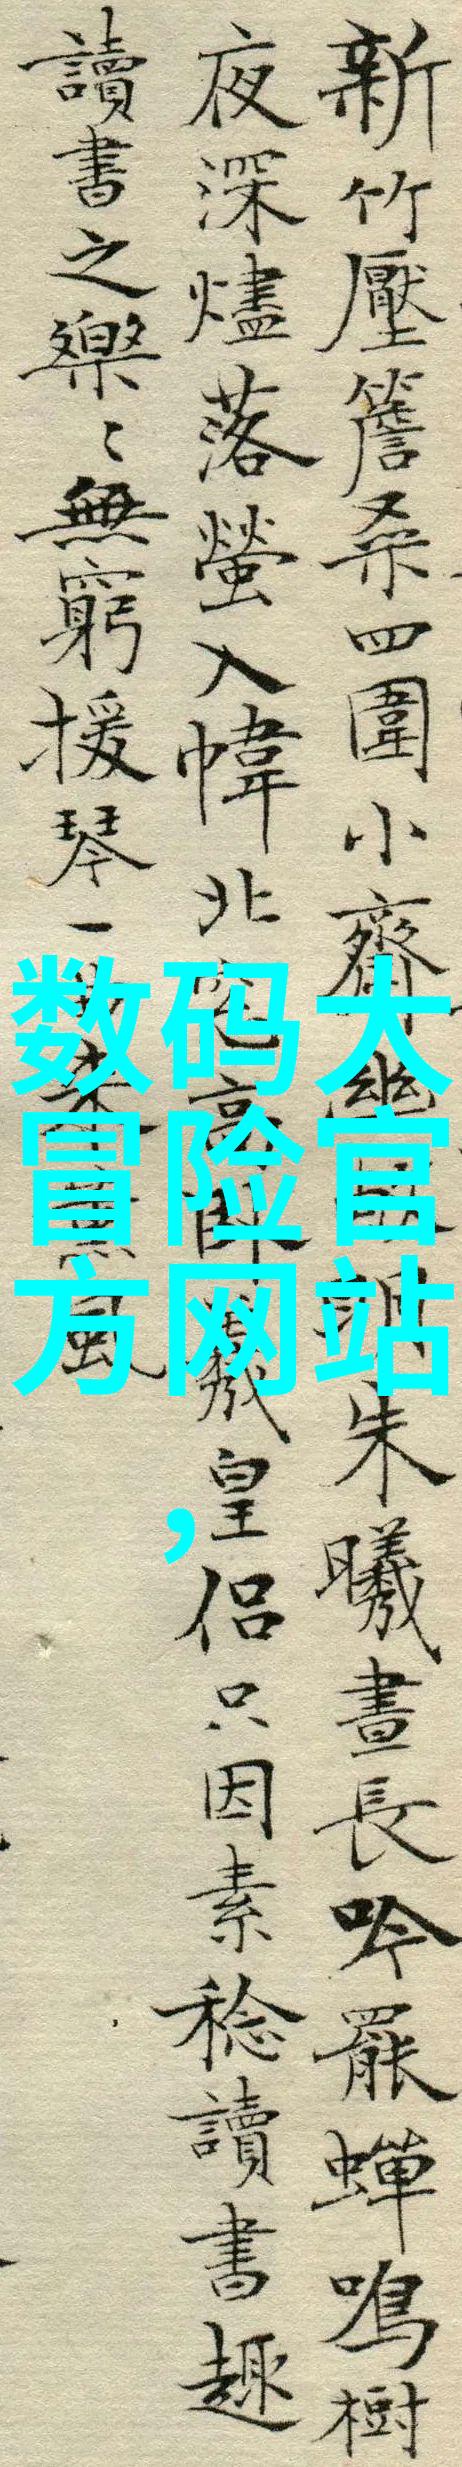 新竹壓簷桑四圍小齋幽明朱曦晝長吟罷蟬鳴樹
夜深燼落螢入幃北高臥羲皇侶只因素稔讀書趣
讀書之樂〻無窮援琴一來薰風
数码大
冒险官
方网站
,